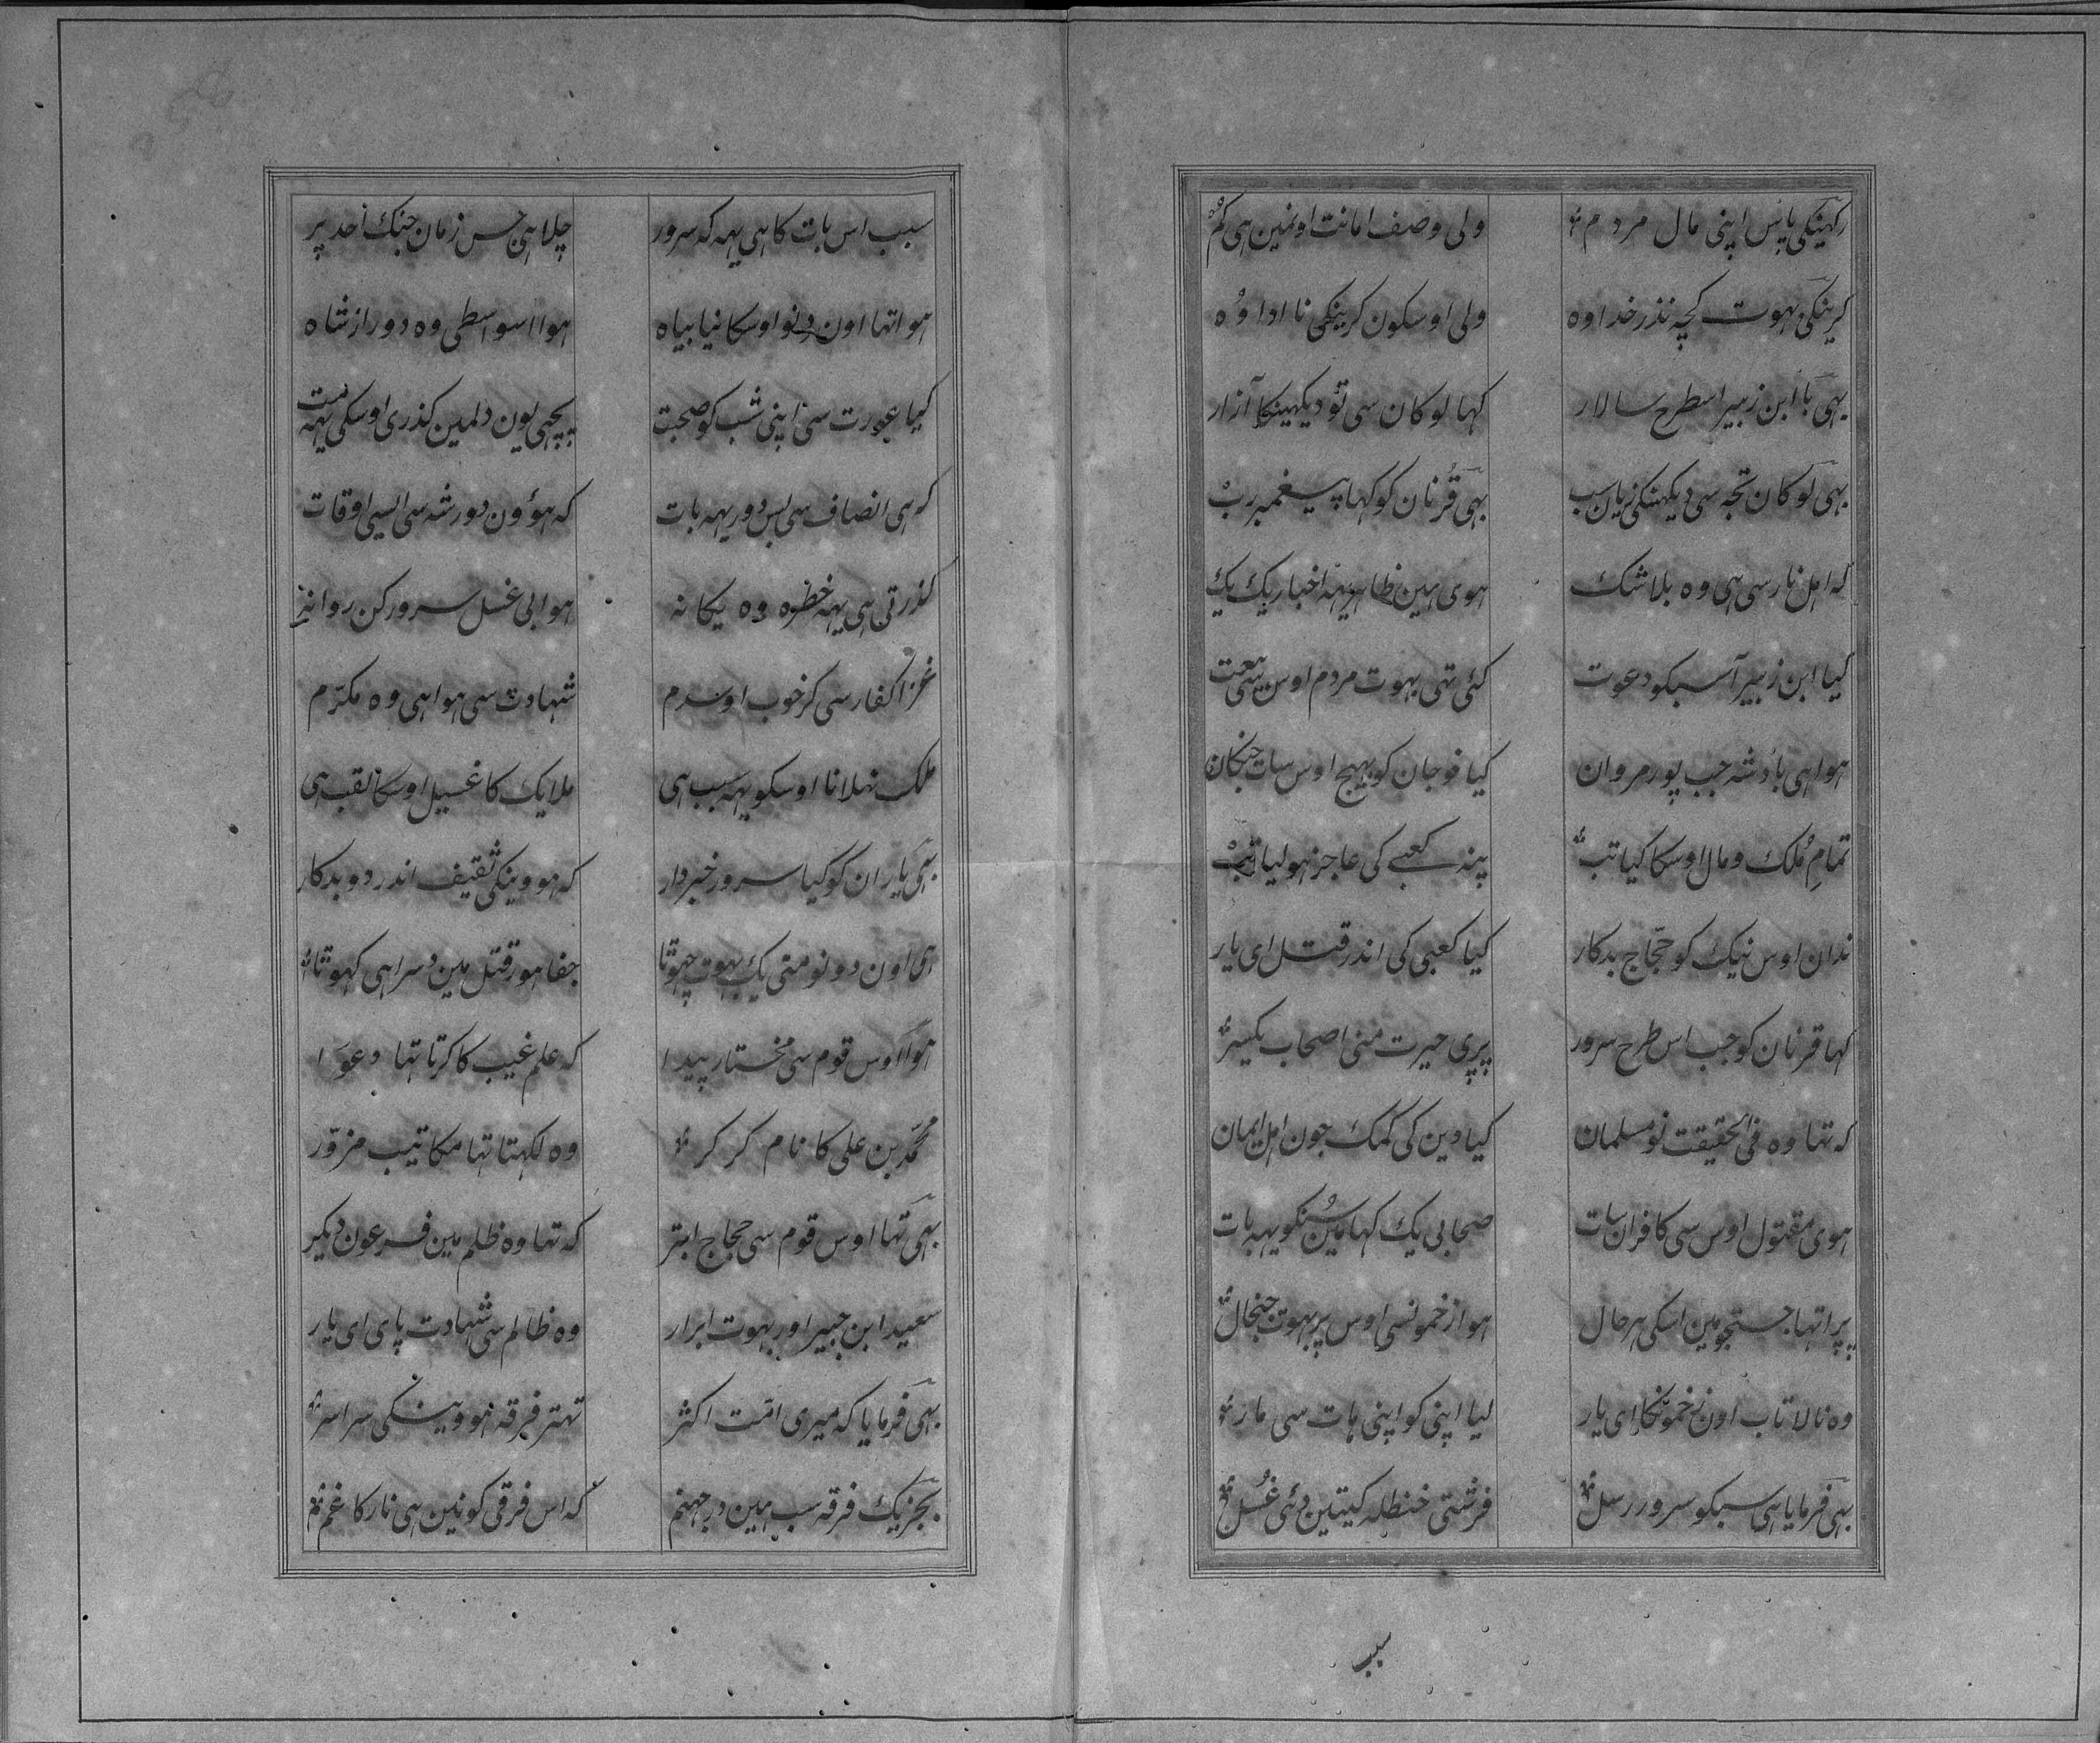 رکھینکی پاس اپنی مال مردم ولی وصف امانت اونمین ہی کم
کرینکی بہوت کچہ نذر خدا وہ ولی اوسکون کرینکی نا ادا وہ
یہی با ابن زبیر اسطرح سالار کہا لوکان سی تو دیکہینکا آزار
بہی لوکان تجہ سی دیکہنکی زیان سب بہی قزنان کو کہا پیغمبر رب
کہ اہل نار سی ہی وہ بلا شک ہوی ہین ظاہر یہہ اخبار یک یک
کیا ابن زبیر آ سبکو دعوت کئی تہی بہوت مردم اوس بیعت
ہوا ہی بادشہ جب پور مروان کیا فوجان کو بہیج اوس سات جنکان
تمام ملک و مال اوسکا کیا تب پنہ کعبے کی عاجز ہو لیا تب
ندان اوس نیک کو حجّاج بدکار کیا کعبی کی اندر قتل ای یار
کہا قزنان کو جب اس طرح سرور پری حیرت منی اصحاب یکسر
کہ تہا وہ فی الحقیقت نو مسلمان کیا دین کی کمک جون اہل ایمان
ہوی مقتول اوس سی کافران سات صحابی یک کہا مین سنکو یہہ بات
پرا تہا جستجو مین اسکی ہر حال ہوا زخمونسی اوس پر بہوت جنجال
وہ نالا تاب اون زخمونکا ای یار لیا اپنی کو اپنی ہات سی مار
بہی فرمایا ہی سبکو سرور رسل فرشتی حنظلہ کیتین دئی غسل
سبب
سبب اس بات کا ہی یہہ کہ سرور چلا ہی جس زمان جنک احد پر
ہوا تہا اون دنو اوسکا نیا بیاہ ہوا اسواسطی وہ دور از شاہ
کیا عورت سی اپنی شب کو صحبت پچہی یون دلمین کذری اوسکی یہہ
کہ ہی انصاف سی بس دور یہہ بات کہ ہوؤن دور شہ سی ایسی اوقات
کذرتی ہی یہہ خطرہ وہ یکانہ ہوا بی غسل سرور کن روانہ
غزا کفار سی کر خوب اوسدم شہادت سی ہوا ہی وہ مکرّم
ملک نہلانا اوسکو یہہ سبب ہی ملایک کا غسیل اوسکا لقب ہی
بہی یاران کو کیا سرور خبردار کہ ہووینکی ثقیف اندر دو بدکار
ہی اون دونو منی یک بہوت جہوٹا جفا ہور قتل مین دسرا ہی کہوٹا
ہوا اوس قوم سی مختار پیدا کہ علم غیب کا کرتا تہا دعوا
محمّد بن علی کا نام کر کر وہ لکہتا تہا مکاتیب مزوّر
بہی تہا اوس قوم سی حجاج ابتر کہ تہا وہ ظلم مین فرعون دیکر
سعید ابن جبیر اور بہوت ابرار وہ ظالم سی شہادت پای ای یار
بہی فرمایا کہ میری امّت اکثر تہتر فرقہ ہووینکی سراسر
بجز یک فرقہ سب ہین در جہنم کہ اس فرقی کو نین ہی نار کا غم